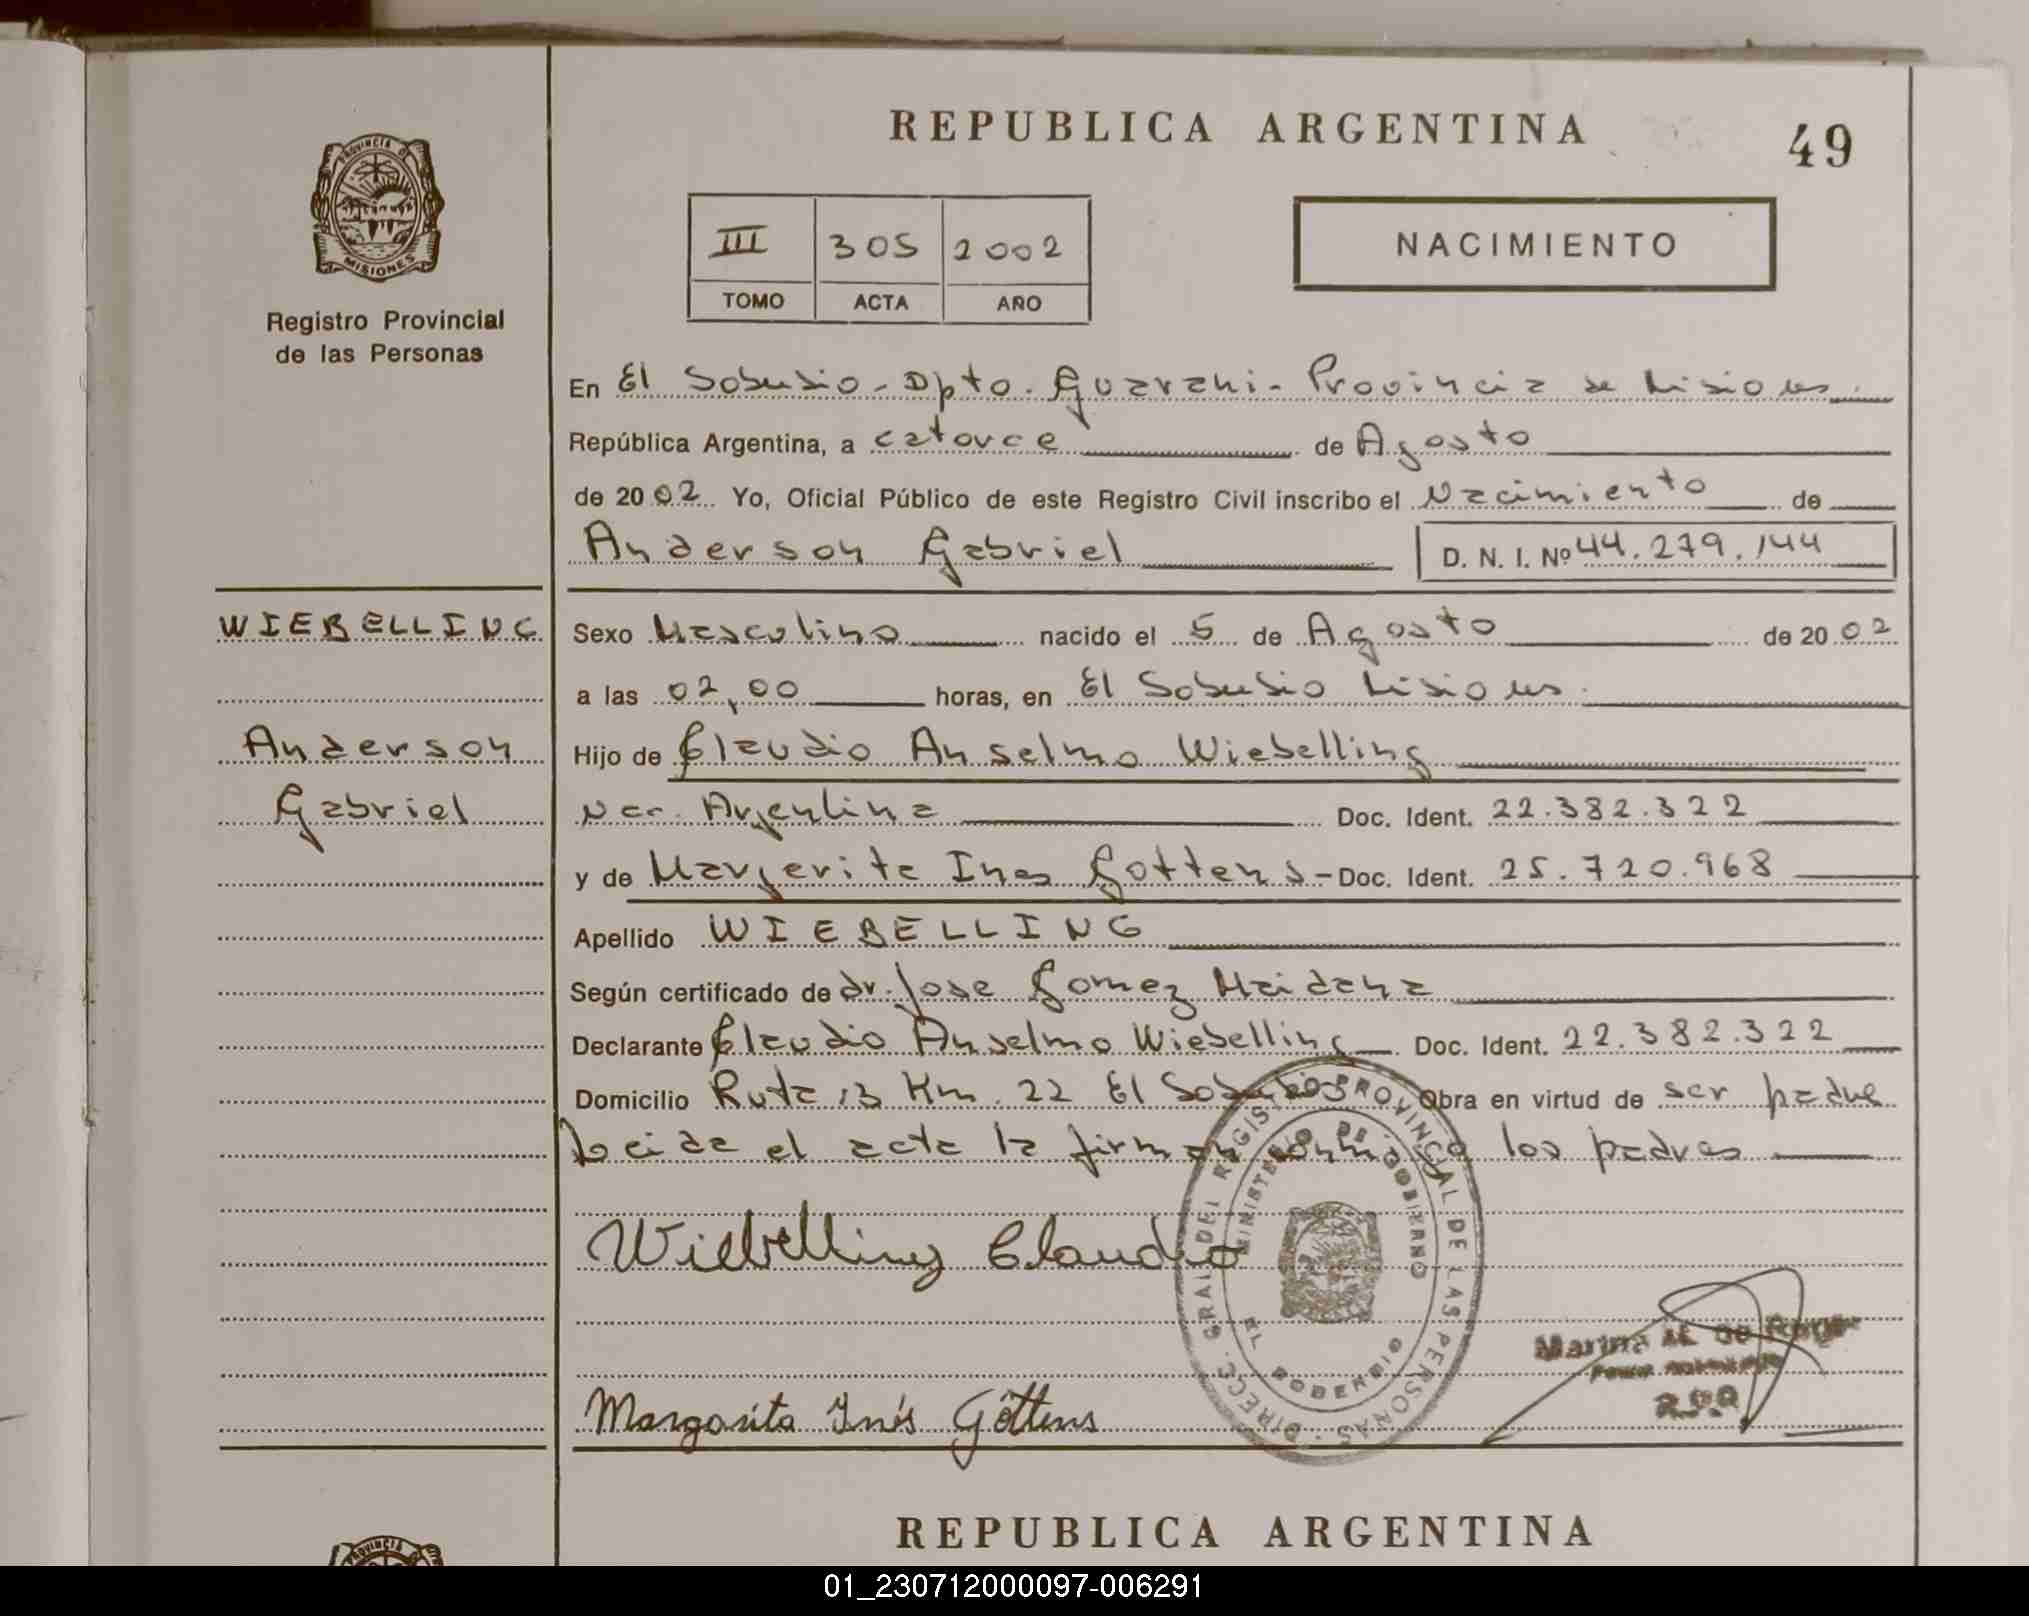 REPUBLICA ARGENTINA
49
PROVINCIA DE
MISIONES
Registro Provincial
de las Personas
III 305 2002
TOMO ACTA AÑO
NACIMIENTO
En El Soberbio - Dpto. Guarani - Provincia de Misiones.
República Argentina, a catorce de Agosto
de 2002 Yo, Oficial Público de este Registro Civil inscribo el Nacimiento de
Anderson Gabriel D. N. I. Nº 44.279.144
WIEBELLING
Anderson
Gabriel
Sexo Masculino nacido el 5 de Agosto de 2002
a las 02,00 horas, en El Soberbio Misiones.
Hijo de Claudio Anselmo Wiebelling
Nac. Argentina Doc. Ident. 22.382.322
y de Margarita Ines Gottens - Doc. Ident. 25.720.968
Apellido WIEBELLING
Según certificado de dr. Jose Gomez Maidana
Declarante Claudio Anselmo Wiebelling Doc. Ident. 22.382.322
Domicilio Ruta 13 Km. 22 El Soberbio Obra en virtud de ser padre
Leida el acta la firman conmigo los padres
Wiebelling Claudio
Margarita Inés Göttens
DIRECC. GRAL DEL REGISTRO PROVINCIAL DE LAS PERSONAS
MINISTERIO DE GOBIERNO
EL SOBERBIO
Marina
REPUBLICA ARGENTINA
PROVINCIA
01_230712000097-006291